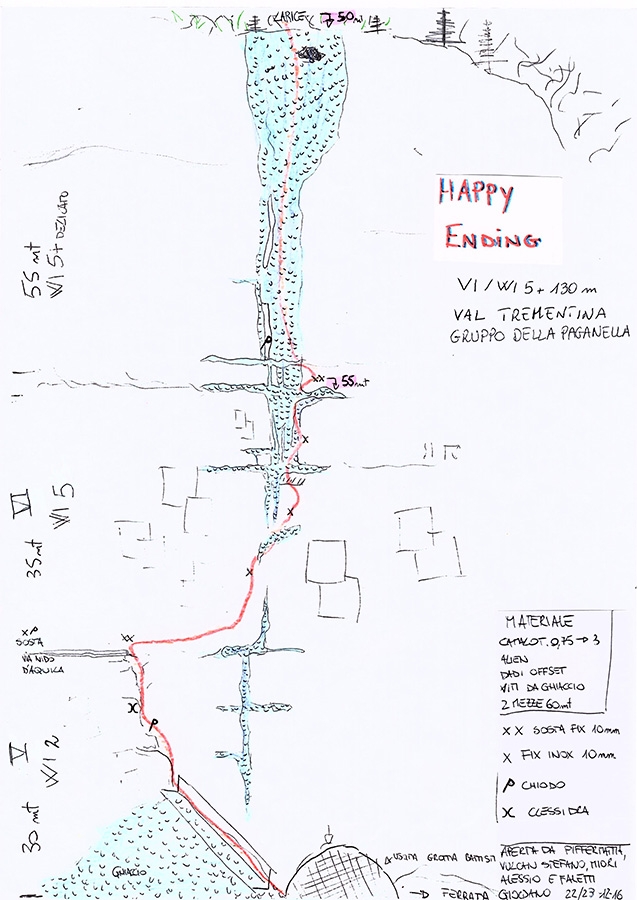 (LARICE) 50 m
HAPPY
ENDING
VI / WI 5+ 130 m
VAL TREMENTINA
GRUPPO DELLA PAGANELLA
55 mt
WI 5+ DELICATO
P
XX 55 mt
X
X
X
VI
WI 5
35 mt
XX
XP
SOSTA
VIA NIDO
D'AQUILA
P
V
WI 2
30 mt
GHIACCIO
MATERIALE
CAMALOT. 0,75 → 3
ALIEN
DADI OFFSET
VITI DA GHIACCIO
2 MEZZE 60 mt
XX SOSTA FIX 10mm
X FIX INOX 10mm
P CHIODO
CLESSIDRA
USCITA GROTTA BATTISTI
→ FERRATA
APERTA DA
VULCAN STEFANO, MORI
ALESSIO E FALETTI
GIORDANO 22/23 12 16